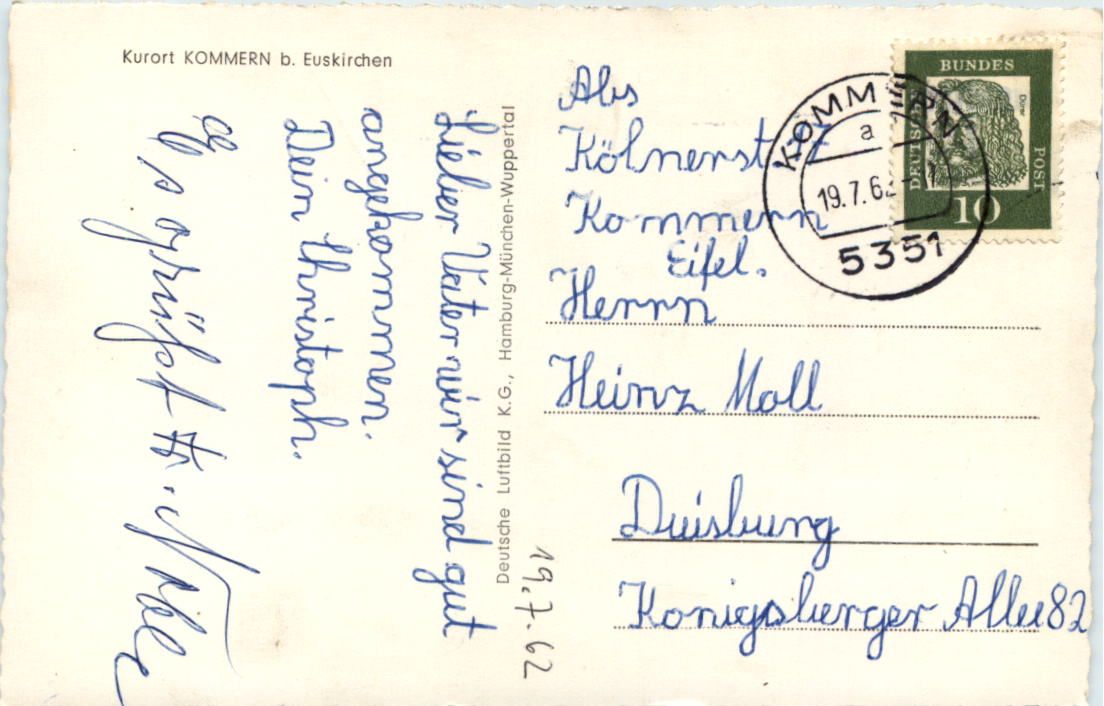 Kurort KOMMERN b. Euskirchen
Lieber Vater wir sind gut
angekommen.
Dein Christoph.
Es grüßt
Deutsche Luftbild K.G., Hamburg-München-Wuppertal
19.7.62
Abs
Kölnerst
Kommern
Eifel.
Herrn
Heinz Moll
Duisburg
Konigsberger Allee 82
KOMMERN
a
19.7.62
5351
DEUTSCHE
BUNDES
POST
Dürer
10